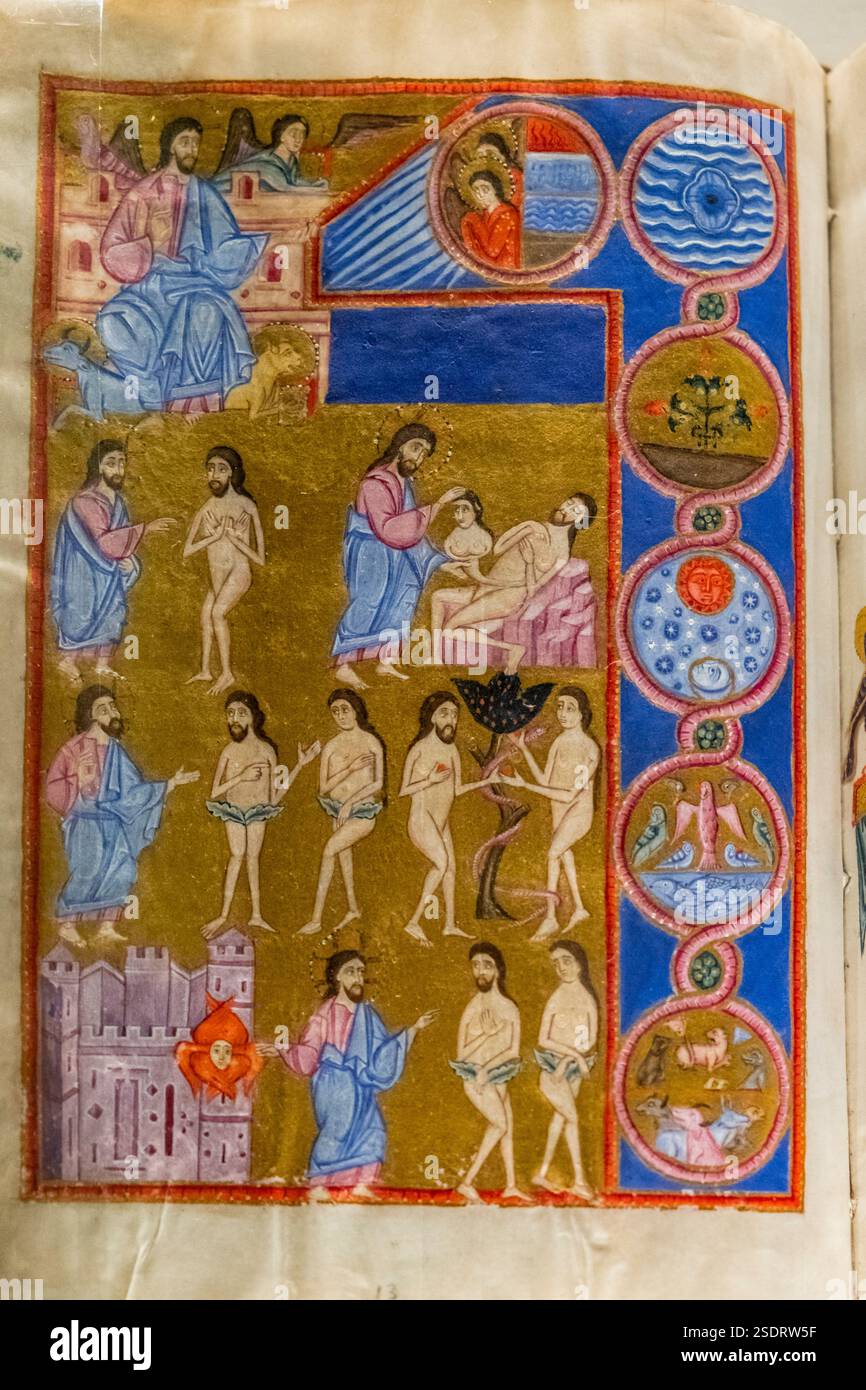 13
alamy
Image ID: 2SDRW5F
www.alamy.com